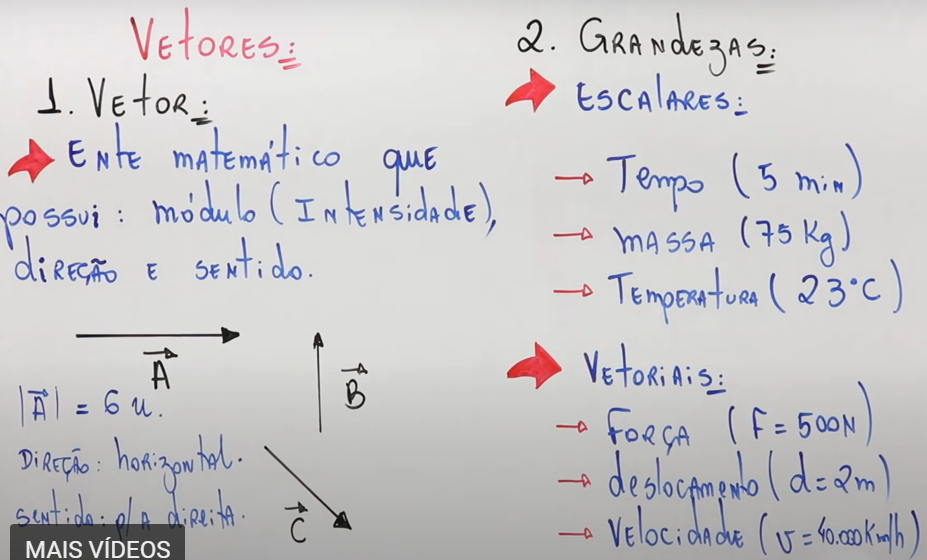 Vetores:
1. Vetor:
Ente matemático que
possui: módulo (Intensidade),
direção e sentido.
A
|A| = 6 u.
Direção: horizontal.
sentido: p/ a direita.
B
C
2. Grandezas:
Escalares:
Tempo (5 min)
massa (75 Kg)
Temperatura (23°C)
Vetoriais:
Força (F = 500N)
deslocamento (d = 2m)
Velocidade (v = 40.000 Km/h)
MAIS VÍDEOS